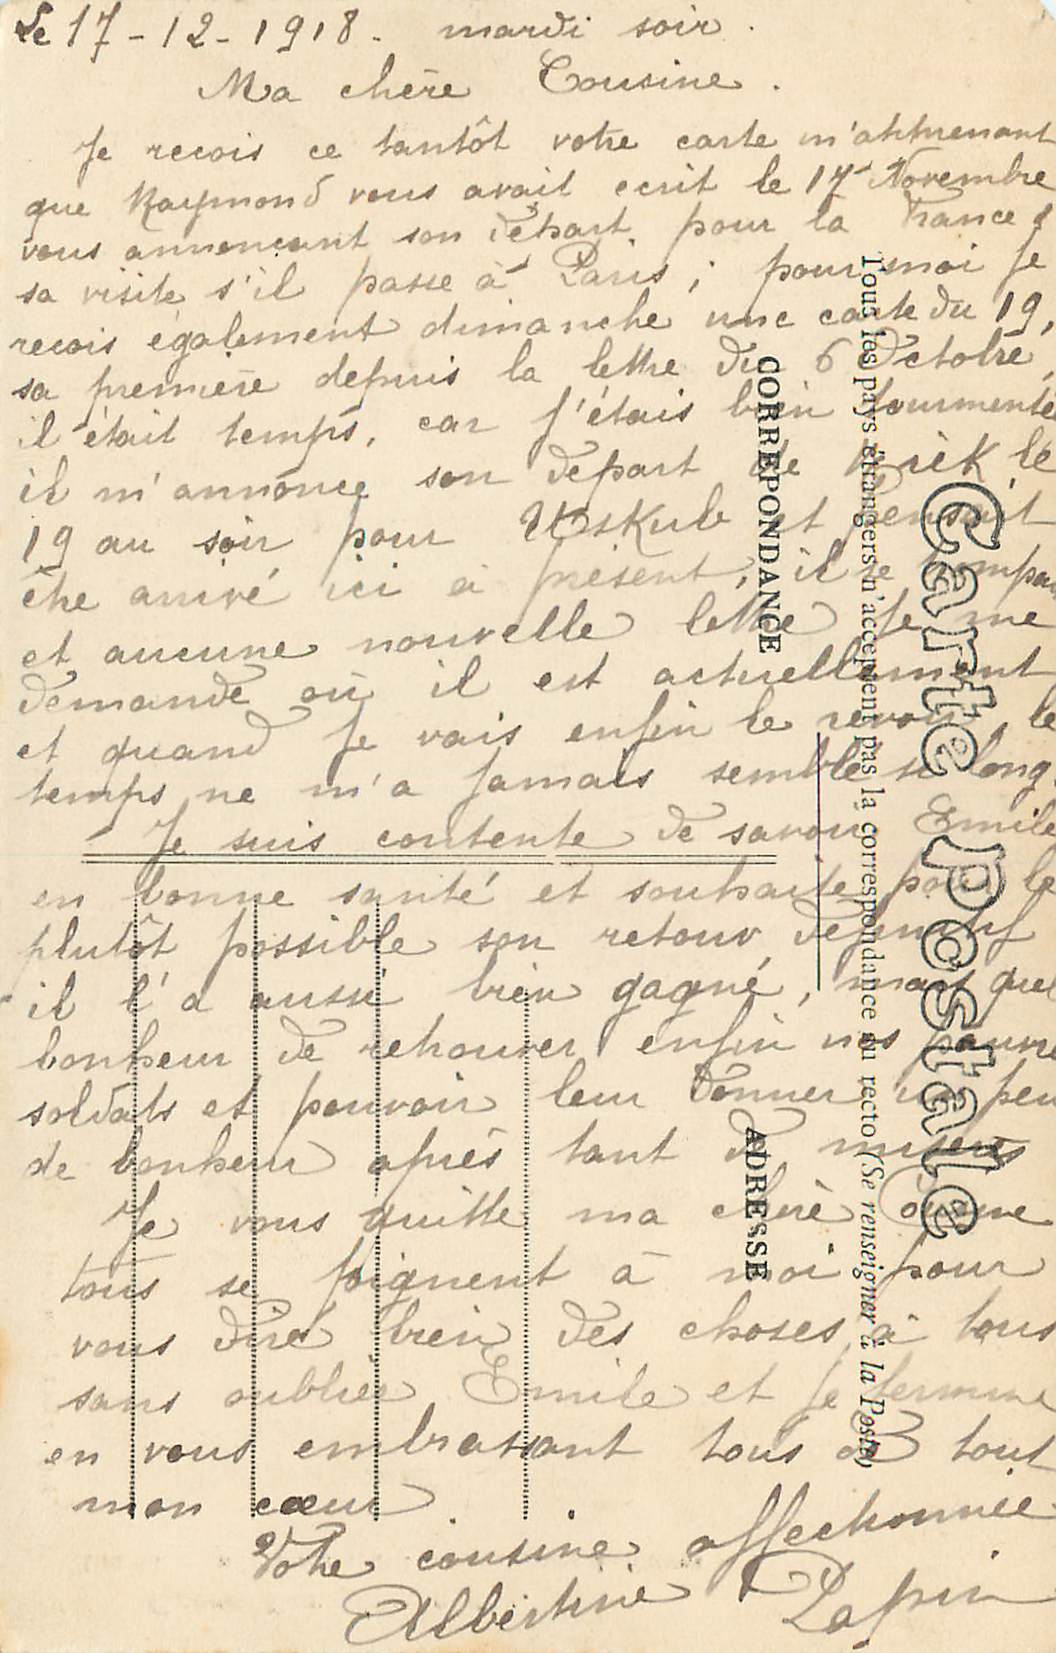 Le 17-12-1918. mardi soir.
Ma chère Cousine.
Je recois ce tantôt votre carte m'apprenant
que Raymond vous avait ecrit le 17 Novembre
vous annonçant son départ pour la France &
sa visite s'il passe à Paris; pour moi Je
recois également dimanche une carte du 19,
sa première depuis la lettre du 6 Octobre,
il était temps, car J'étais bien tourmenté
il m'annonce son départ de le
19 au soir pour Uskub et pensait
être arrivé ici à présent, il se trompa
et aucune nouvelle lettre Je me
demande où il est actuellement
et quand Je vais enfin le revoir, le
temps ne m'a Jamais semblé si long.
Je suis contente de savoir Emile
en bonne santé et souhaite pour le
plutôt possible son retour définitif
il l'a aussi bien gagné, mais quel
bonheur de retrouver enfin nos pauvre
soldats et pouvoir leur donner un peu
de bonheur après tant de misères
Je vous quitte ma chère Cousine
tous se Joignent à moi pour
vous dire bien des choses à tous
sans oublier Emile et Je termine
en vous embrassant tous de tout
mon cœur
Votre cousine affectionnée
Albertine Lapin
Carte Postale
Tous les pays étrangers n'acceptent pas la correspondance au recto (Se renseigner à la Poste)
CORREPONDANCE
ADRESSE